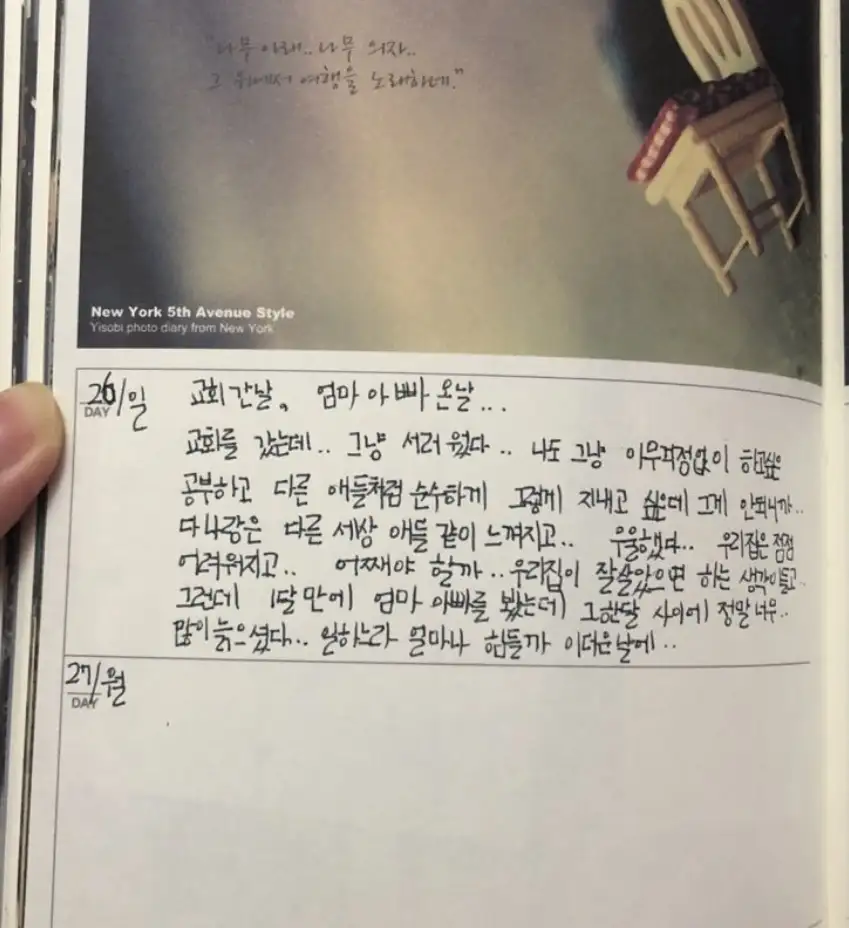 "나무 아래.. 나무 의자..
그 위에서 여행을 노래하네."
New York 5th Avenue Style
Yisobi photo diary from New York
26/일 교회 간날, 엄마 아빠 온날...
DAY
교회를 갔는데.. 그냥 서러웠다.. 나도 그냥 아무걱정없이 하고싶은
공부하고 다른 애들처럼 순수하게 그렇게 지내고 싶은데 그게 안되니까..
다 나랑은 다른 세상 애들 같이 느껴지고.. 우울했다.. 우리집은 점점
어려워지고.. 어찌해야 할까.. 우리집이 잘살았으면 하는 생각이들고..
그런데 1달만에 엄마 아빠를 봤는데 그한달 사이에 정말 너무..
많이 늙으셨다... 일하느라 얼마나 힘들까 이더운날에..
27/월
DAY